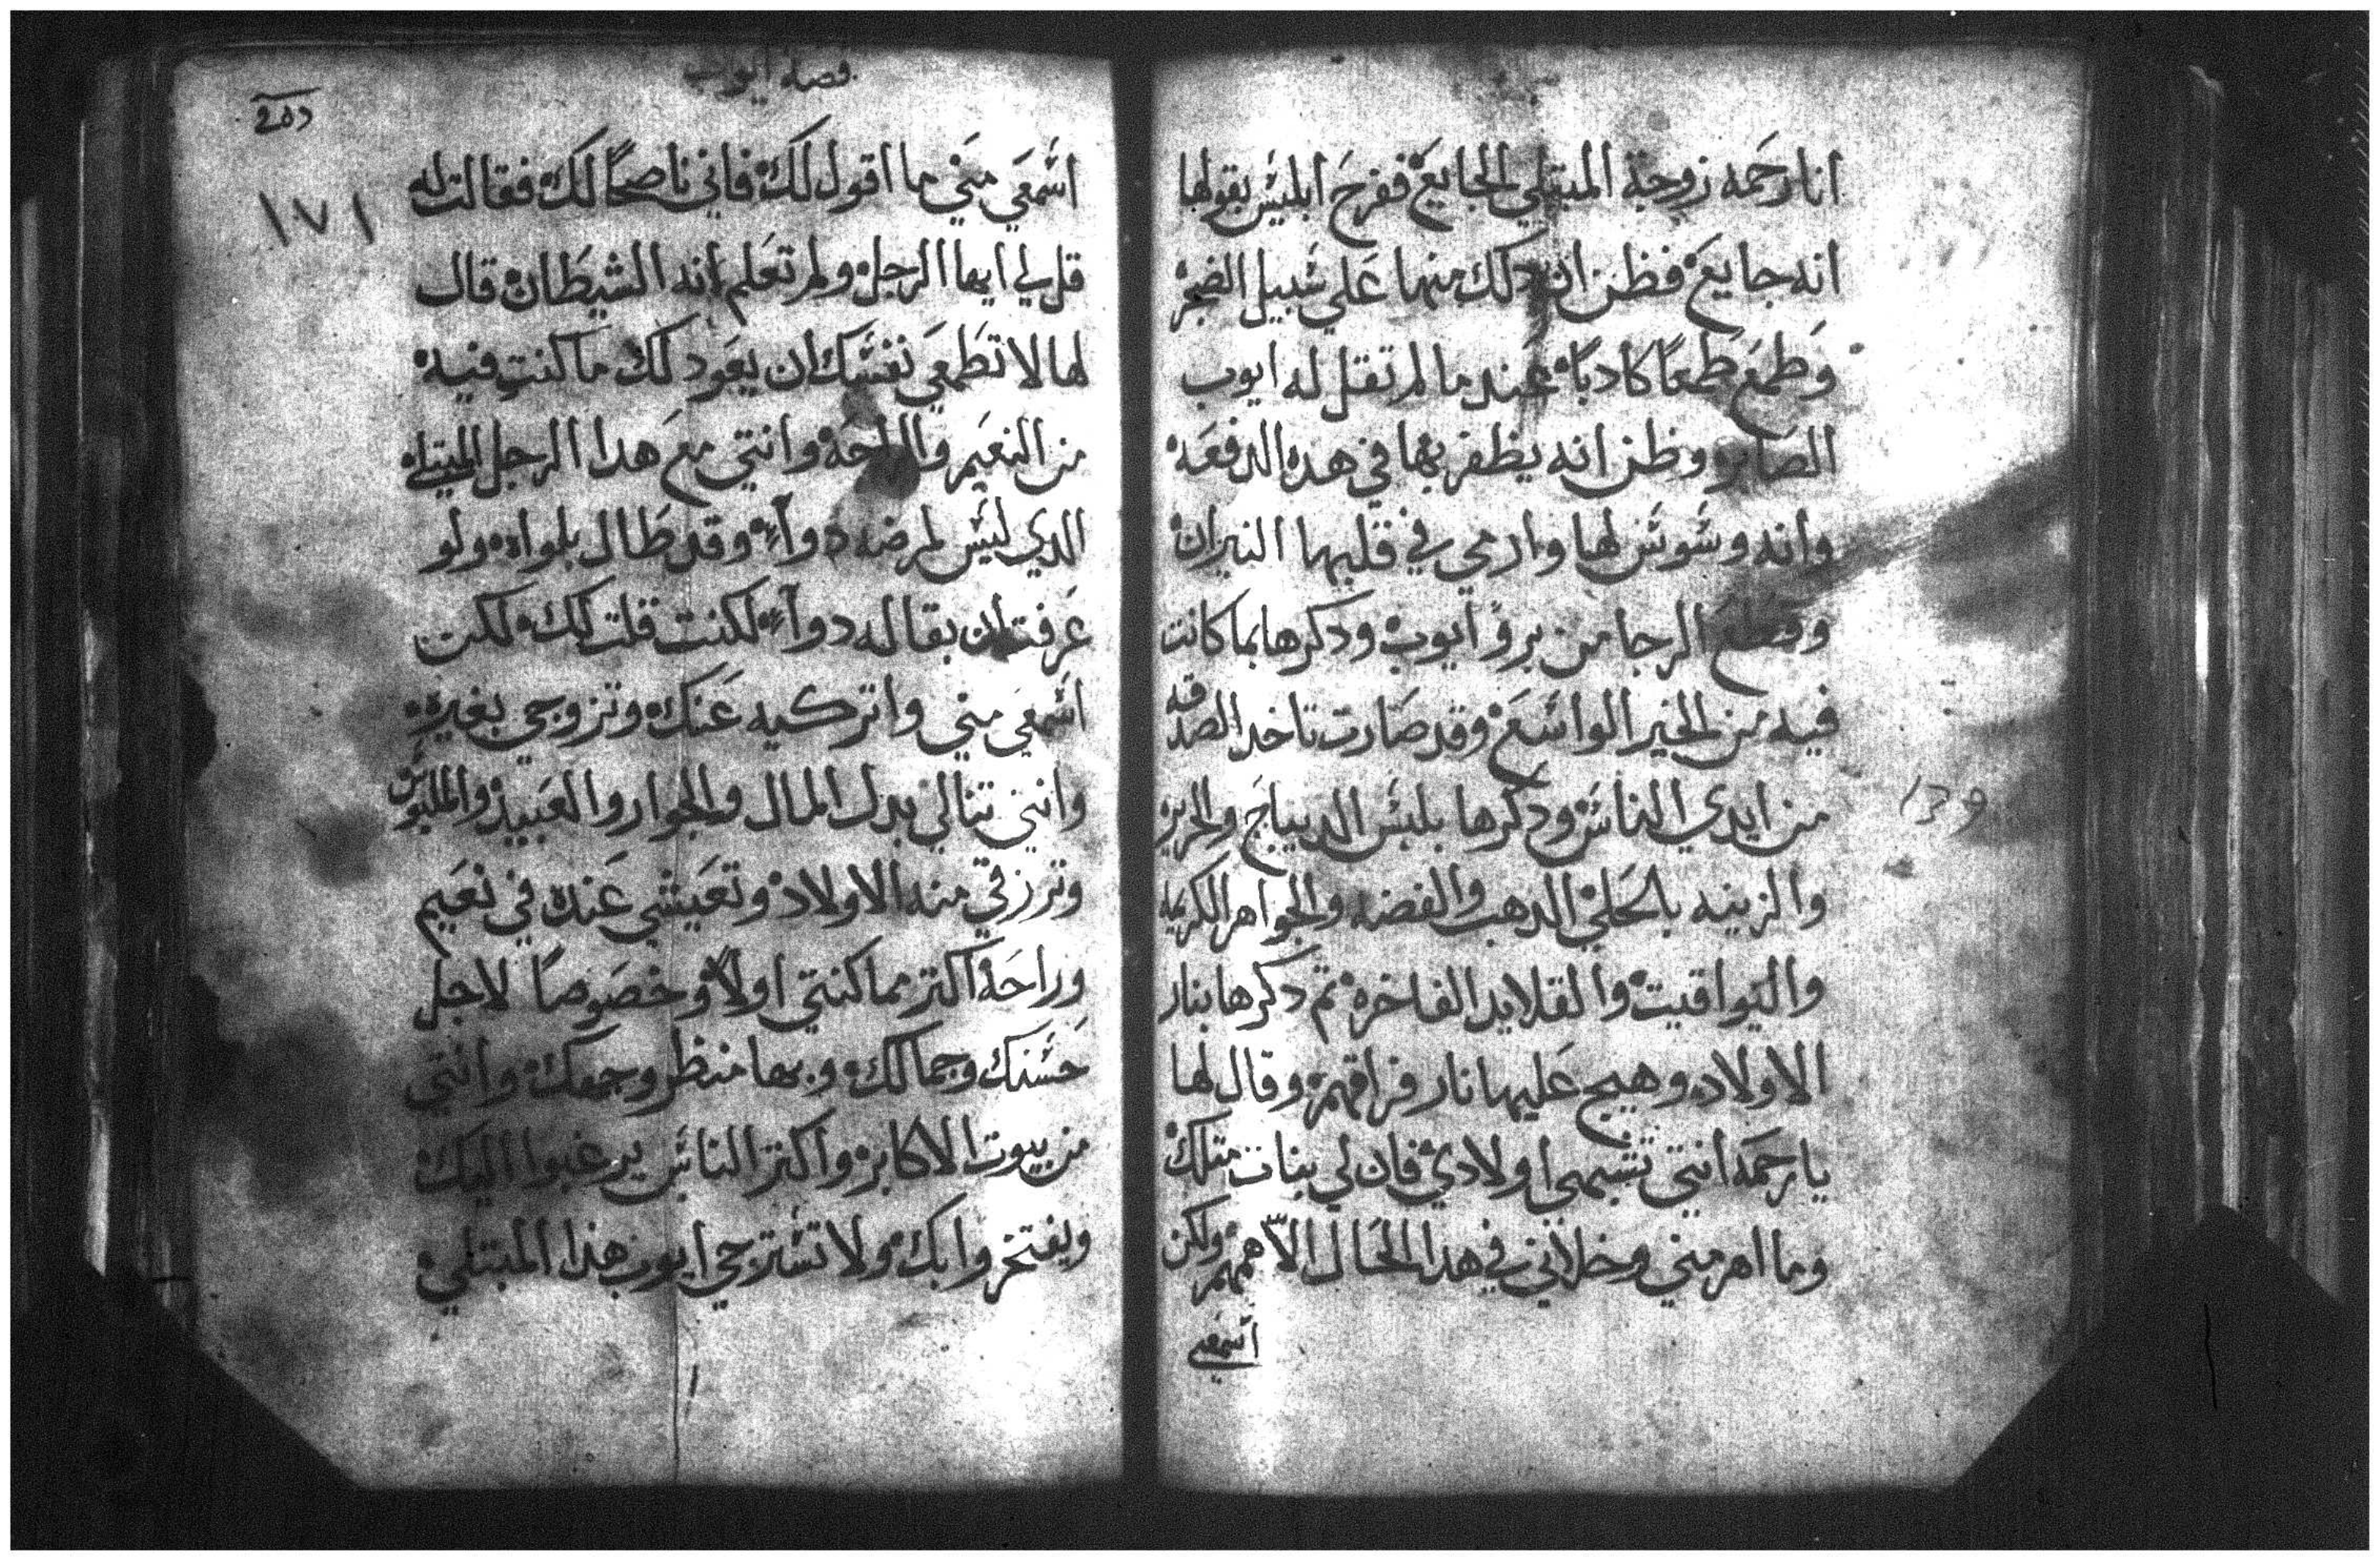 انا رحمه زوجة المبتلي الجايع ففرح ابليس بقولها
انه جايع فظن ان دلك منها علي سبيل الضجر
وطمع طمعاً كادباً عند ما لم تقل له ايوب
الصابر وظن انه يظفر بها في هده الدفعه
وانه وسوس لها وارمي في قلبها النيران
وقطع الرجا من برو ايوب ودكرها بما كانت
فيه من الخير الواسع وقد صارت تاخد الصدقه
من ايدي الناس ودكرها بلبس الديباج والحرير
والزينه بالحلي الدهب والفضه والجواهر الكريمه
واليواقيت والقلايد الفاخره تم دكرها بنار
الاولاد وهيج عليها نار فراقهم وقال لها
يا رحمه انتي تشبهي اولادي فان لي بنات متلك
وما اهرمني وخلاني في هدا الحال الا همهم ولكن
اسمعي
قصة ايوب
اسمعي مني ما اقول لك فاني ناصحاً لك فقالت له
١٧١
قل لي ايها الرجل ولم تعلم انه الشيطان قال
لها لا تطمعي نفسك ان يعود لك ما كنت فيه
من النعيم والراحه وانتي مع هدا الرجل المبتلي
الدي ليس لمرضه دوآء وقد طال بلواه ولو
عرفت ان بقا له دوآء لكنت قلت لك لكن
اسمعي مني واتركيه عنك وتزوجي بغيره
وانتي تنالي بدل المال والجوار والعبيد والملبوس
وترزقي منه الاولاد وتعيشي عنده في نعيم
وراحه اكتر مما كنتي اولاً وخصوصاً لاجل
حسنك وجمالك وبها منظر وجهك وانتي
من بيوت الاكابر واكتر الناس يرغبوا اليك
ويفتخروا بك ولا تسترجي ايوب هدا المبتلي